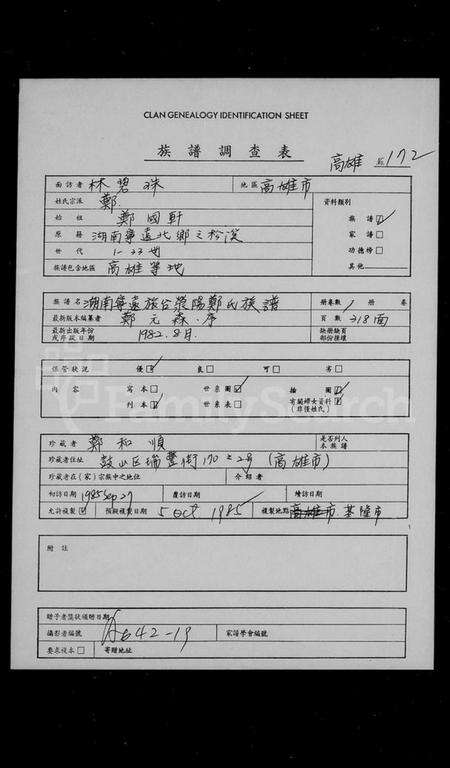 CLAN GENEALOGY IDENTIFICATION SHEET
族譜調查表
高雄 172
面訪者 林碧珠 地區 高雄市
姓氏宗派 鄭 資料類別
始祖 鄭國軒 族譜☑
原籍 湖南寧遠北鄉之 家譜□
世代 1-23世 功德榜□
族譜包含地區 高雄等地 其他
族譜名 湖南寧遠旅台滎陽鄭氏族譜 冊卷數 1 冊 卷
最新版本編纂者 鄭元森 序 頁數 318面
最新出版年份或序跋日期 1982.8月. 缺冊缺頁部份殘壞
保管狀況 優☑ 良□ 可□ 劣□
內容 寫本□ 世系圖☑ 繪圖☑
刊本☑ 世系表□ 有關婦女資料☑(非僅姓氏)
珍藏者 鄭和順 是否列入本族譜
珍藏者住址 鼓山區瑞豐街170之2号 (高雄市)
珍藏者在(家)宗族中之地位 介紹者
初訪日期 1985 Sep 27 覆訪日期 續訪日期
允許複製☑ 預擬複製日期 5 Oct 1985 複製地點 高雄市.基隆市
附註
贈予者獎狀頒贈日期
攝影者編號 A642-19 家譜學會編號
要求複本□ 寄贈地址
FamilySearch